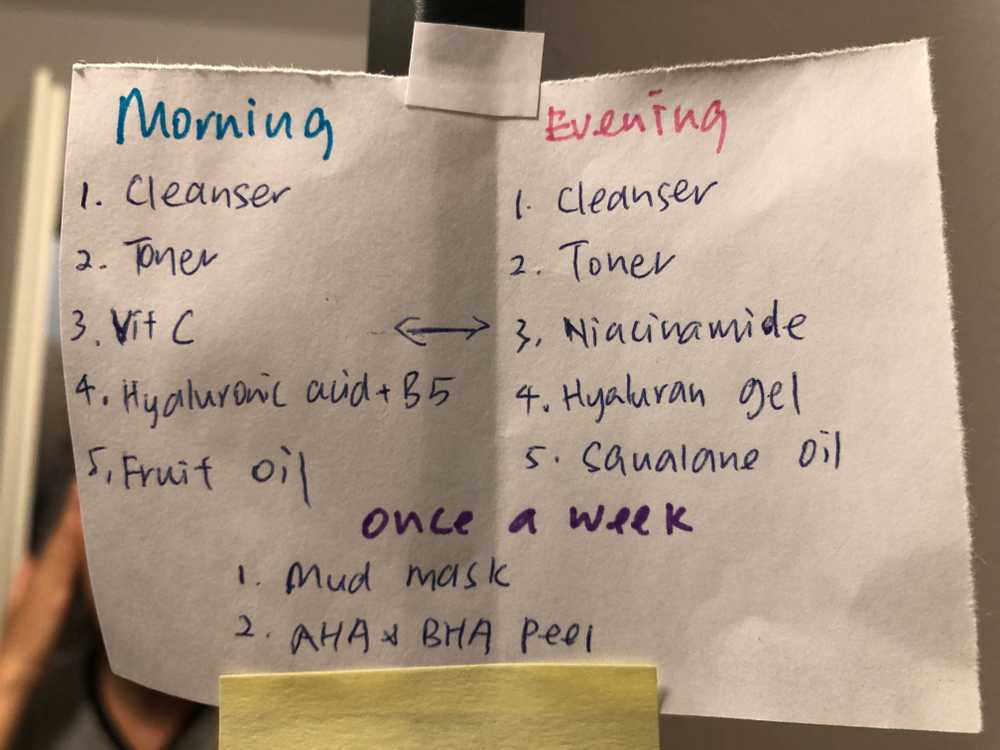 Morning
1. Cleanser
2. Toner
3. Vit C
4. Hyaluronic acid + B5
5. Fruit oil
Evening
1. Cleanser
2. Toner
3. Niacinamide
4. Hyaluran gel
5. Squalane oil
once a week
1. Mud mask
2. AHA & BHA peel